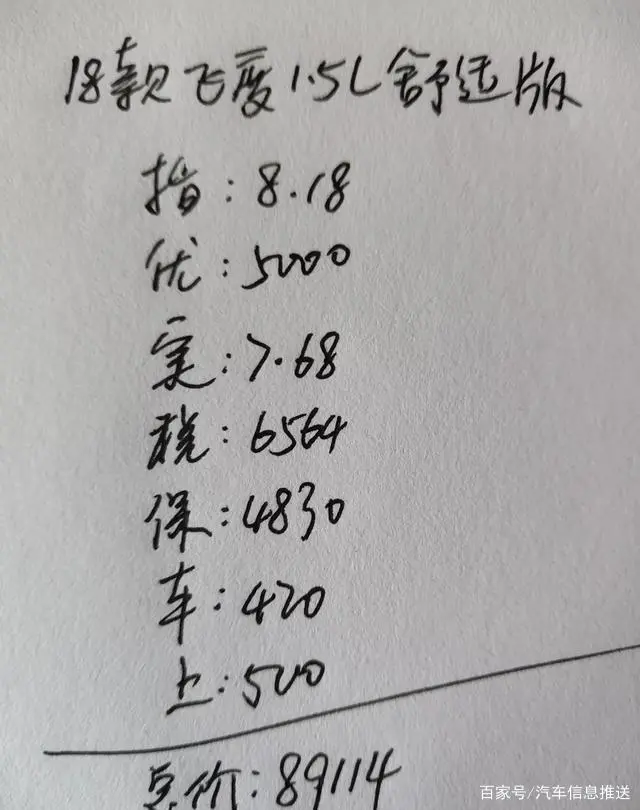 18款飞度1.5L舒适版
指:8.18
优:5000
实:7.68
税:6564
保:4830
车:420
上:500
总价:89114
百家号/汽车信息推送